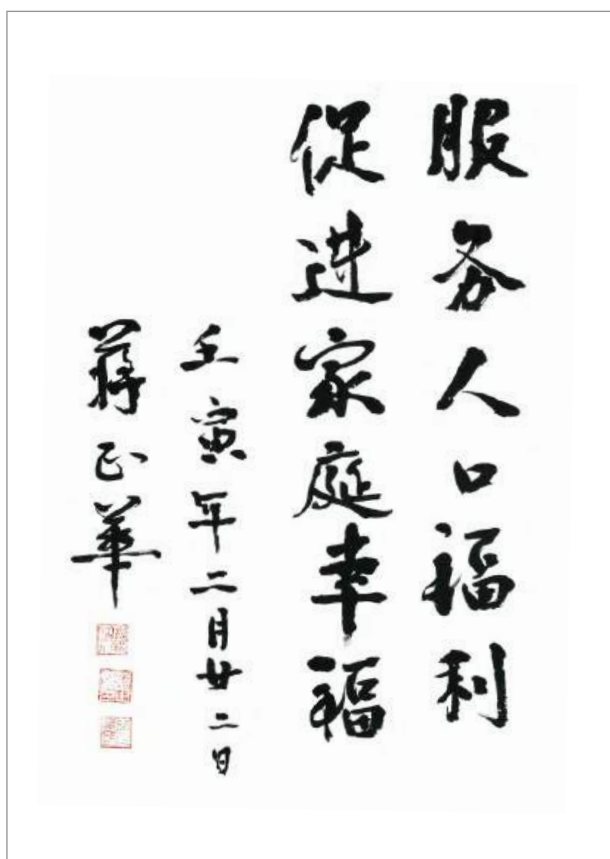 服务人口福利
促进家庭幸福
壬寅年二月廿二日
蒋正華